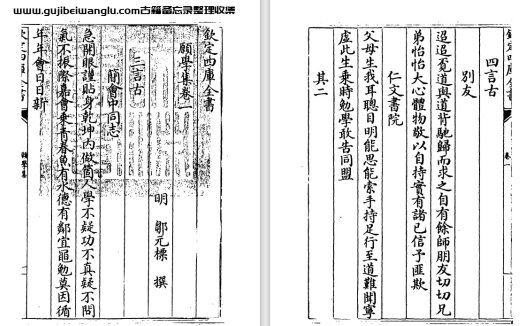 www.gujibeiwanglu.com古籍备忘录整理收集
欽定四庫全書
願學集卷一
明 鄒元標 撰
三言古
簡會中同志
急開眼謹貼身乾坤内做箇人學不疑功不真疑不問
氣不振際嘉會乘青春魚有水德有鄰宜黽勉莫因循
年年會日日新
欽定四庫全書
願學集
欽定四庫全書
卷一
四言古
别友
迢迢覔道與道背馳歸而求之自有餘師朋友切切兄
弟怡怡大心體物敬以自持實有諸已信予匪欺
仁文書院
父母生我耳聰目明能思能索手持足行至道難聞寧
虚此生乘時勉學敢告同盟
其二